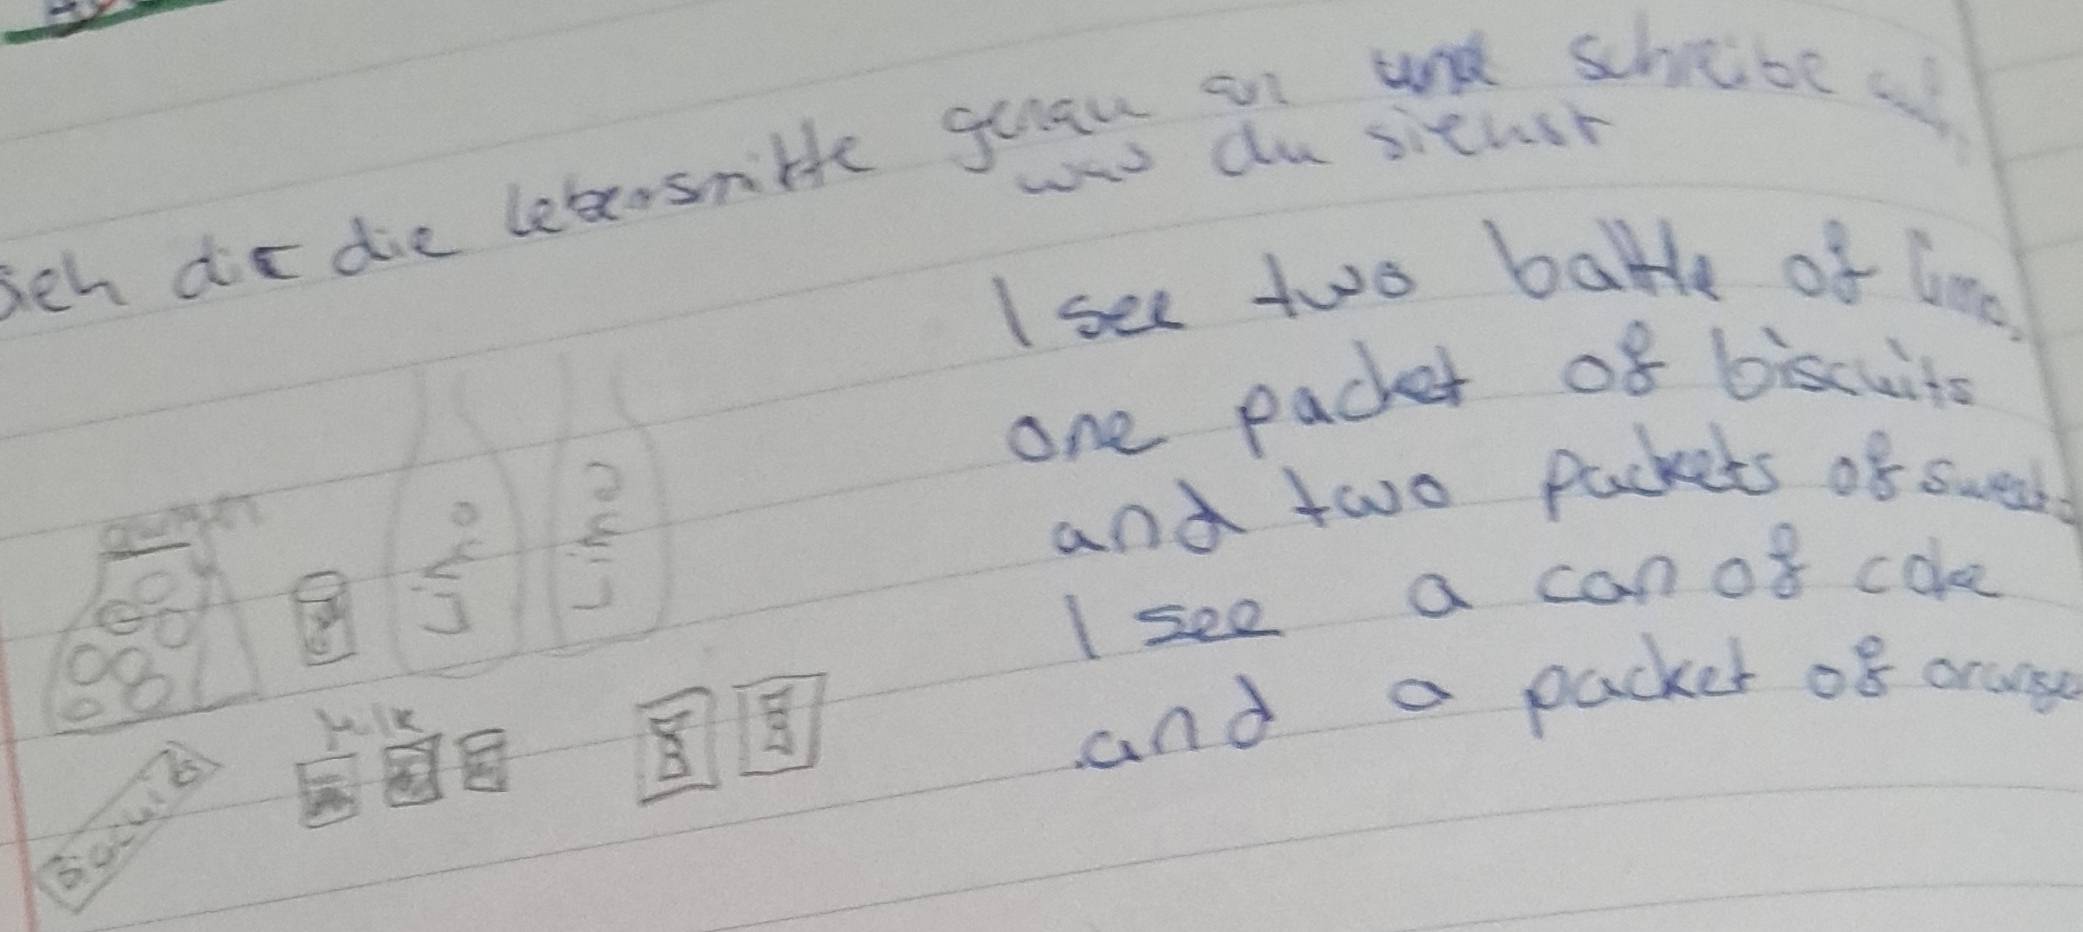 seh dir die lebensmitte genau an und schreibe auf,
was du siehst
I see two battle of Limo,
one packet of biscuits
and two packets of sweets
I see a can of coke
and a packet of orange
orangen
Limo
Limo
Milk
Biscuits